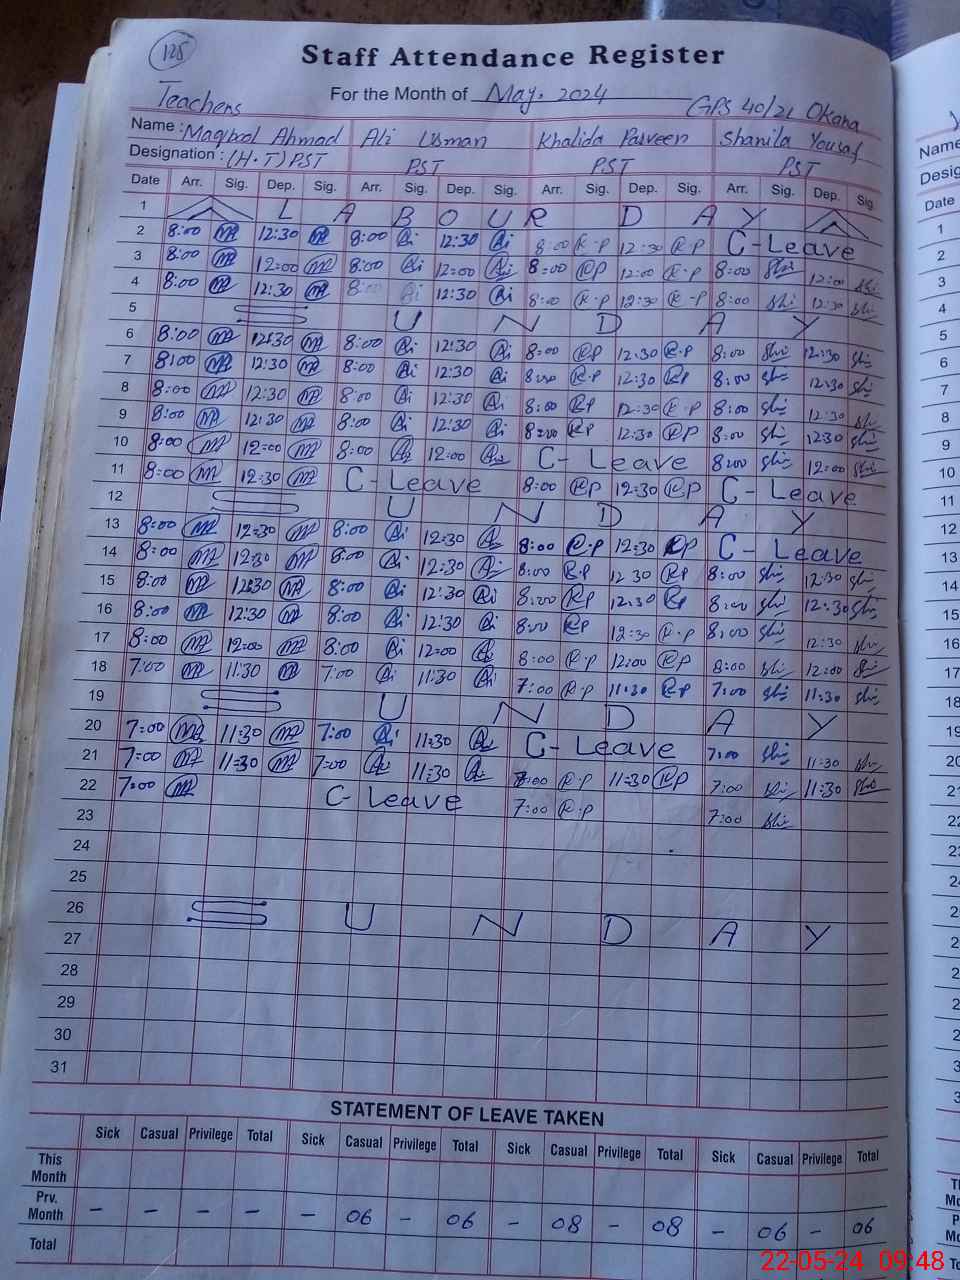 125
Staff Attendance Register
Teachers For the Month of May. 2024 GPS 40/2L Okara
Name : Maqbool Ahmad Ali Usman Khalida Parveen Shamila Yousaf
Designation : (H.T) PST PST PST PST
Date Arr. Sig. Dep. Sig. Arr. Sig. Dep. Sig. Arr. Sig. Dep. Sig. Arr. Sig. Dep. Sig.
1 L A B O U R D A Y
2 8:00 12:30 8:00 12:30 8:00 R.P 12:30 R.P C-Leave
3 8:00 12:00 8:00 12:00 8:00 RP 12:00 R.P 8:00 12:00
4 8:00 12:30 8:00 12:30 8:00 R.P 12:30 R.P 8:00 12:30
5 S U N D A Y
6 8:00 12:30 8:00 12:30 8:00 RP 12:30 R.P 8:00 12:30
7 8:00 12:30 8:00 12:30 8:00 RP 12:30 RP 8:00 12:30
8 8:00 12:30 8:00 12:30 8:00 RP 12:30 R.P 8:00 12:30
9 8:00 12:30 8:00 12:30 8:00 RP 12:30 RP 8:00 12:30
10 8:00 12:00 8:00 12:00 C-Leave 8:00 12:00
11 8:00 12:30 C-Leave 8:00 RP 12:30 RP C-Leave
12 S U N D A Y
13 8:00 12:30 8:00 12:30 8:00 R.P 12:30 RP C-Leave
14 8:00 12:30 8:00 12:30 8:00 R.P 12:30 RP 8:00 12:30
15 8:00 12:30 8:00 12:30 8:00 RP 12:30 RP 8:00 12:30
16 8:00 12:30 8:00 12:30 8:00 RP 12:30 R.P 8:00 12:30
17 8:00 12:00 8:00 12:00 8:00 R.P 12:00 RP 8:00 12:00
18 7:00 11:30 7:00 11:30 7:00 R.P 11:30 RP 7:00 11:30
19 S U N D A Y
20 7:00 11:30 7:00 11:30 C-Leave 7:00 11:30
21 7:00 11:30 7:00 11:30 R.P 11:30 RP 7:00 11:30
22 7:00 C-Leave 7:00 R.P 7:00
23
24
25
26 S U N D A Y
27
28
29
30
31
STATEMENT OF LEAVE TAKEN
Sick Casual Privilege Total Sick Casual Privilege Total Sick Casual Privilege Total Sick Casual Privilege Total
This Month
Prv. Month - - - - - 06 - 06 - 08 - 08 - 06 - 06
Total
22-05-24 09:48